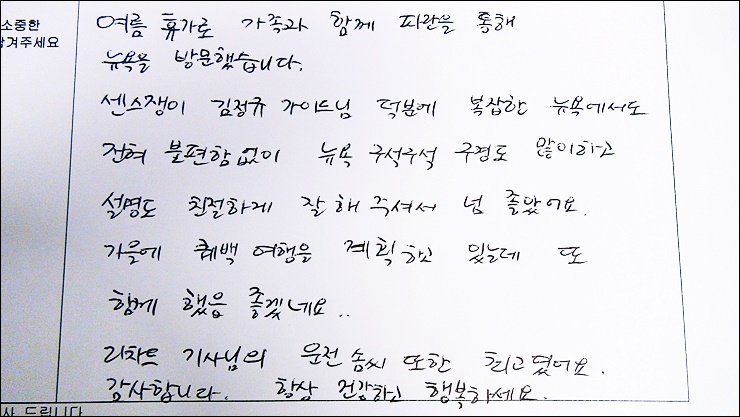 소중한
남겨주세요
여름 휴가로 가족과 함께 파란을 통해
뉴욕을 방문했습니다.
센스쟁이 김정규 가이드님 덕분에 복잡한 뉴욕에서도
전혀 불편함없이 뉴욕 구석구석 구경도 많이하고
설명도 친절하게 잘 해 주셔서 넘 좋았어요.
가을에 퀘백 여행을 계획하고 있는데 또
함께 했음 좋겠네요..
리차드 기사님의 운전 솜씨 또한 최고였어요.
감사합니다. 항상 건강하고 행복하세요.
사 드립니다